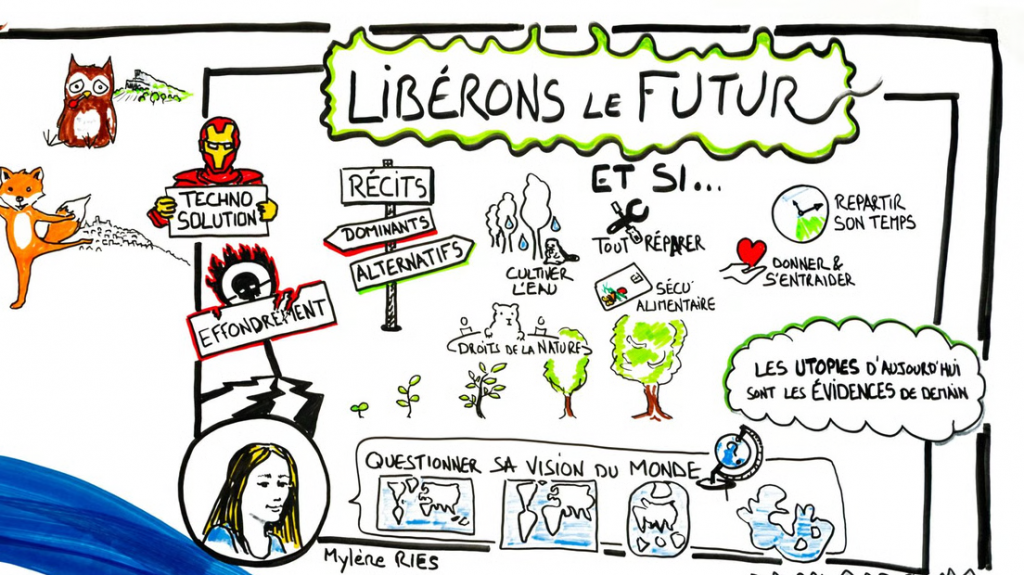 LIBÉRONS LE FUTUR
TECHNO
SOLUTION
EFFONDREMENT
RÉCITS
DOMINANTS
ALTERNATIFS
ET SI...
CULTIVER
L'EAU
TOUT RÉPARER
SÉCU'
ALIMENTAIRE
REPARTIR
SON TEMPS
DONNER &
S'ENTRAIDER
DROITS DE LA NATURE
LES UTOPIES D'AUJOURD'HUI
SONT LES ÉVIDENCES DE DEMAIN
QUESTIONNER SA VISION DU MONDE
Mylène RIES